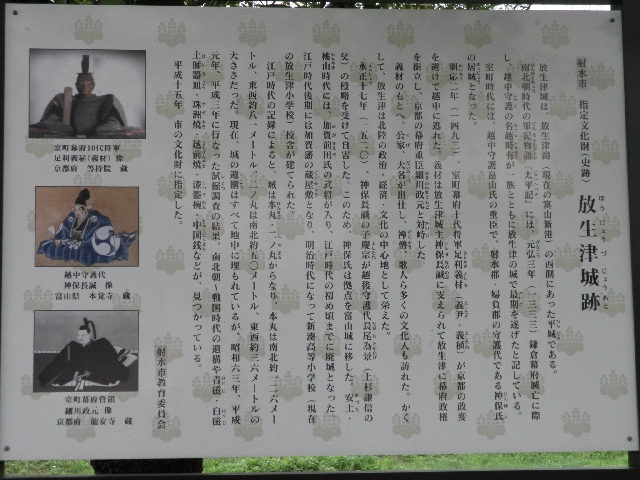 射水市 指定文化財(史跡)
放生津城跡
ほうじょうづじょうあと
放生津城は、放生津潟(現在の富山新港)の西側にあった平城である。
南北朝時代の軍記物語『太平記』には、元弘三年(一三三三)鎌倉幕府滅亡に際
し、越中守護の名越時有が一族とともに放生津の城で最期を遂げたと記している。
室町時代には、越中守護畠山氏の重臣で、射水郡・婦負郡の守護代である神保氏
の居城となった。
明応二年(一四九三)、室町幕府十代将軍足利義材(義尹・義稙)が京都の政変
を避けて越中に逃れた。義材は放生津城主神保長誠に支えられて放生津に幕府政権
を樹立し、京都の幕府重臣細川政元と対峙した。
義材のもとへ、公家・大名が出仕し、禅僧、歌人ら多くの文化人も訪れた。かく
して、放生津は北陸の政治・経済・文化の中心地として栄えた。
永正十七年(一五二〇)、神保長誠の子慶宗が越後守護代長尾為景(上杉謙信の
父)の侵略を受けて自害した。このため、神保氏は拠点を富山城に移した。安土・
桃山時代には、加賀前田氏の武将が入り、江戸時代の初め頃までに廃城となった。
江戸時代後期には加賀藩の蔵屋敷となり、明治時代になって新湊高等小学校(現在
の放生津小学校)校舎が建てられた。
江戸時代の記録によると、城は本丸・二ノ丸からなり、本丸は南北約一二六メー
トル、東西約八一メートル、二ノ丸は南北約五〇メートル、東西約三六メートルの
大きさだった。現在、城の遺構はすべて地中に埋もれているが、昭和六三年、平成
元年、平成三年に行なった試掘調査の結果、南北朝〜戦国時代の遺構や青磁・白磁
土師器皿・珠洲焼・越前焼・漆器椀・中国銭などが、見つかっている。
平成十五年、市の文化財に指定した。
射水市教育委員会
室町幕府10代将軍
足利義稙(義材)像
京都府 等持院 蔵
越中守護代
神保長誠 像
富山県 本覚寺 蔵
室町幕府管領
細川政元 像
京都府 龍安寺 蔵